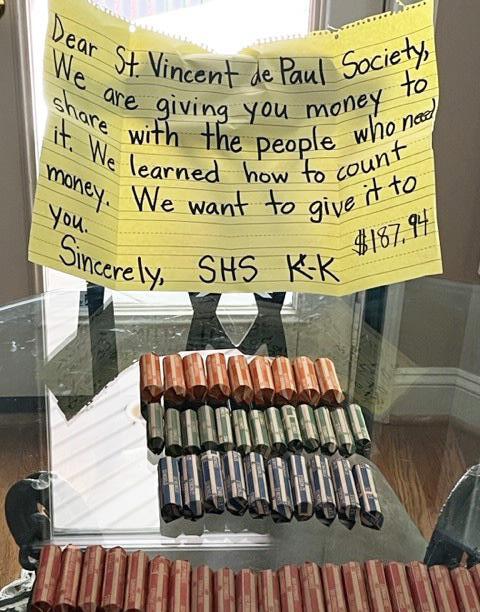 Dear St. Vincent de Paul Society,
We are giving you money to
share with the people who need
it. We learned how to count
money. We want to give it to
you.
$187.94
Sincerely, SHS K-K